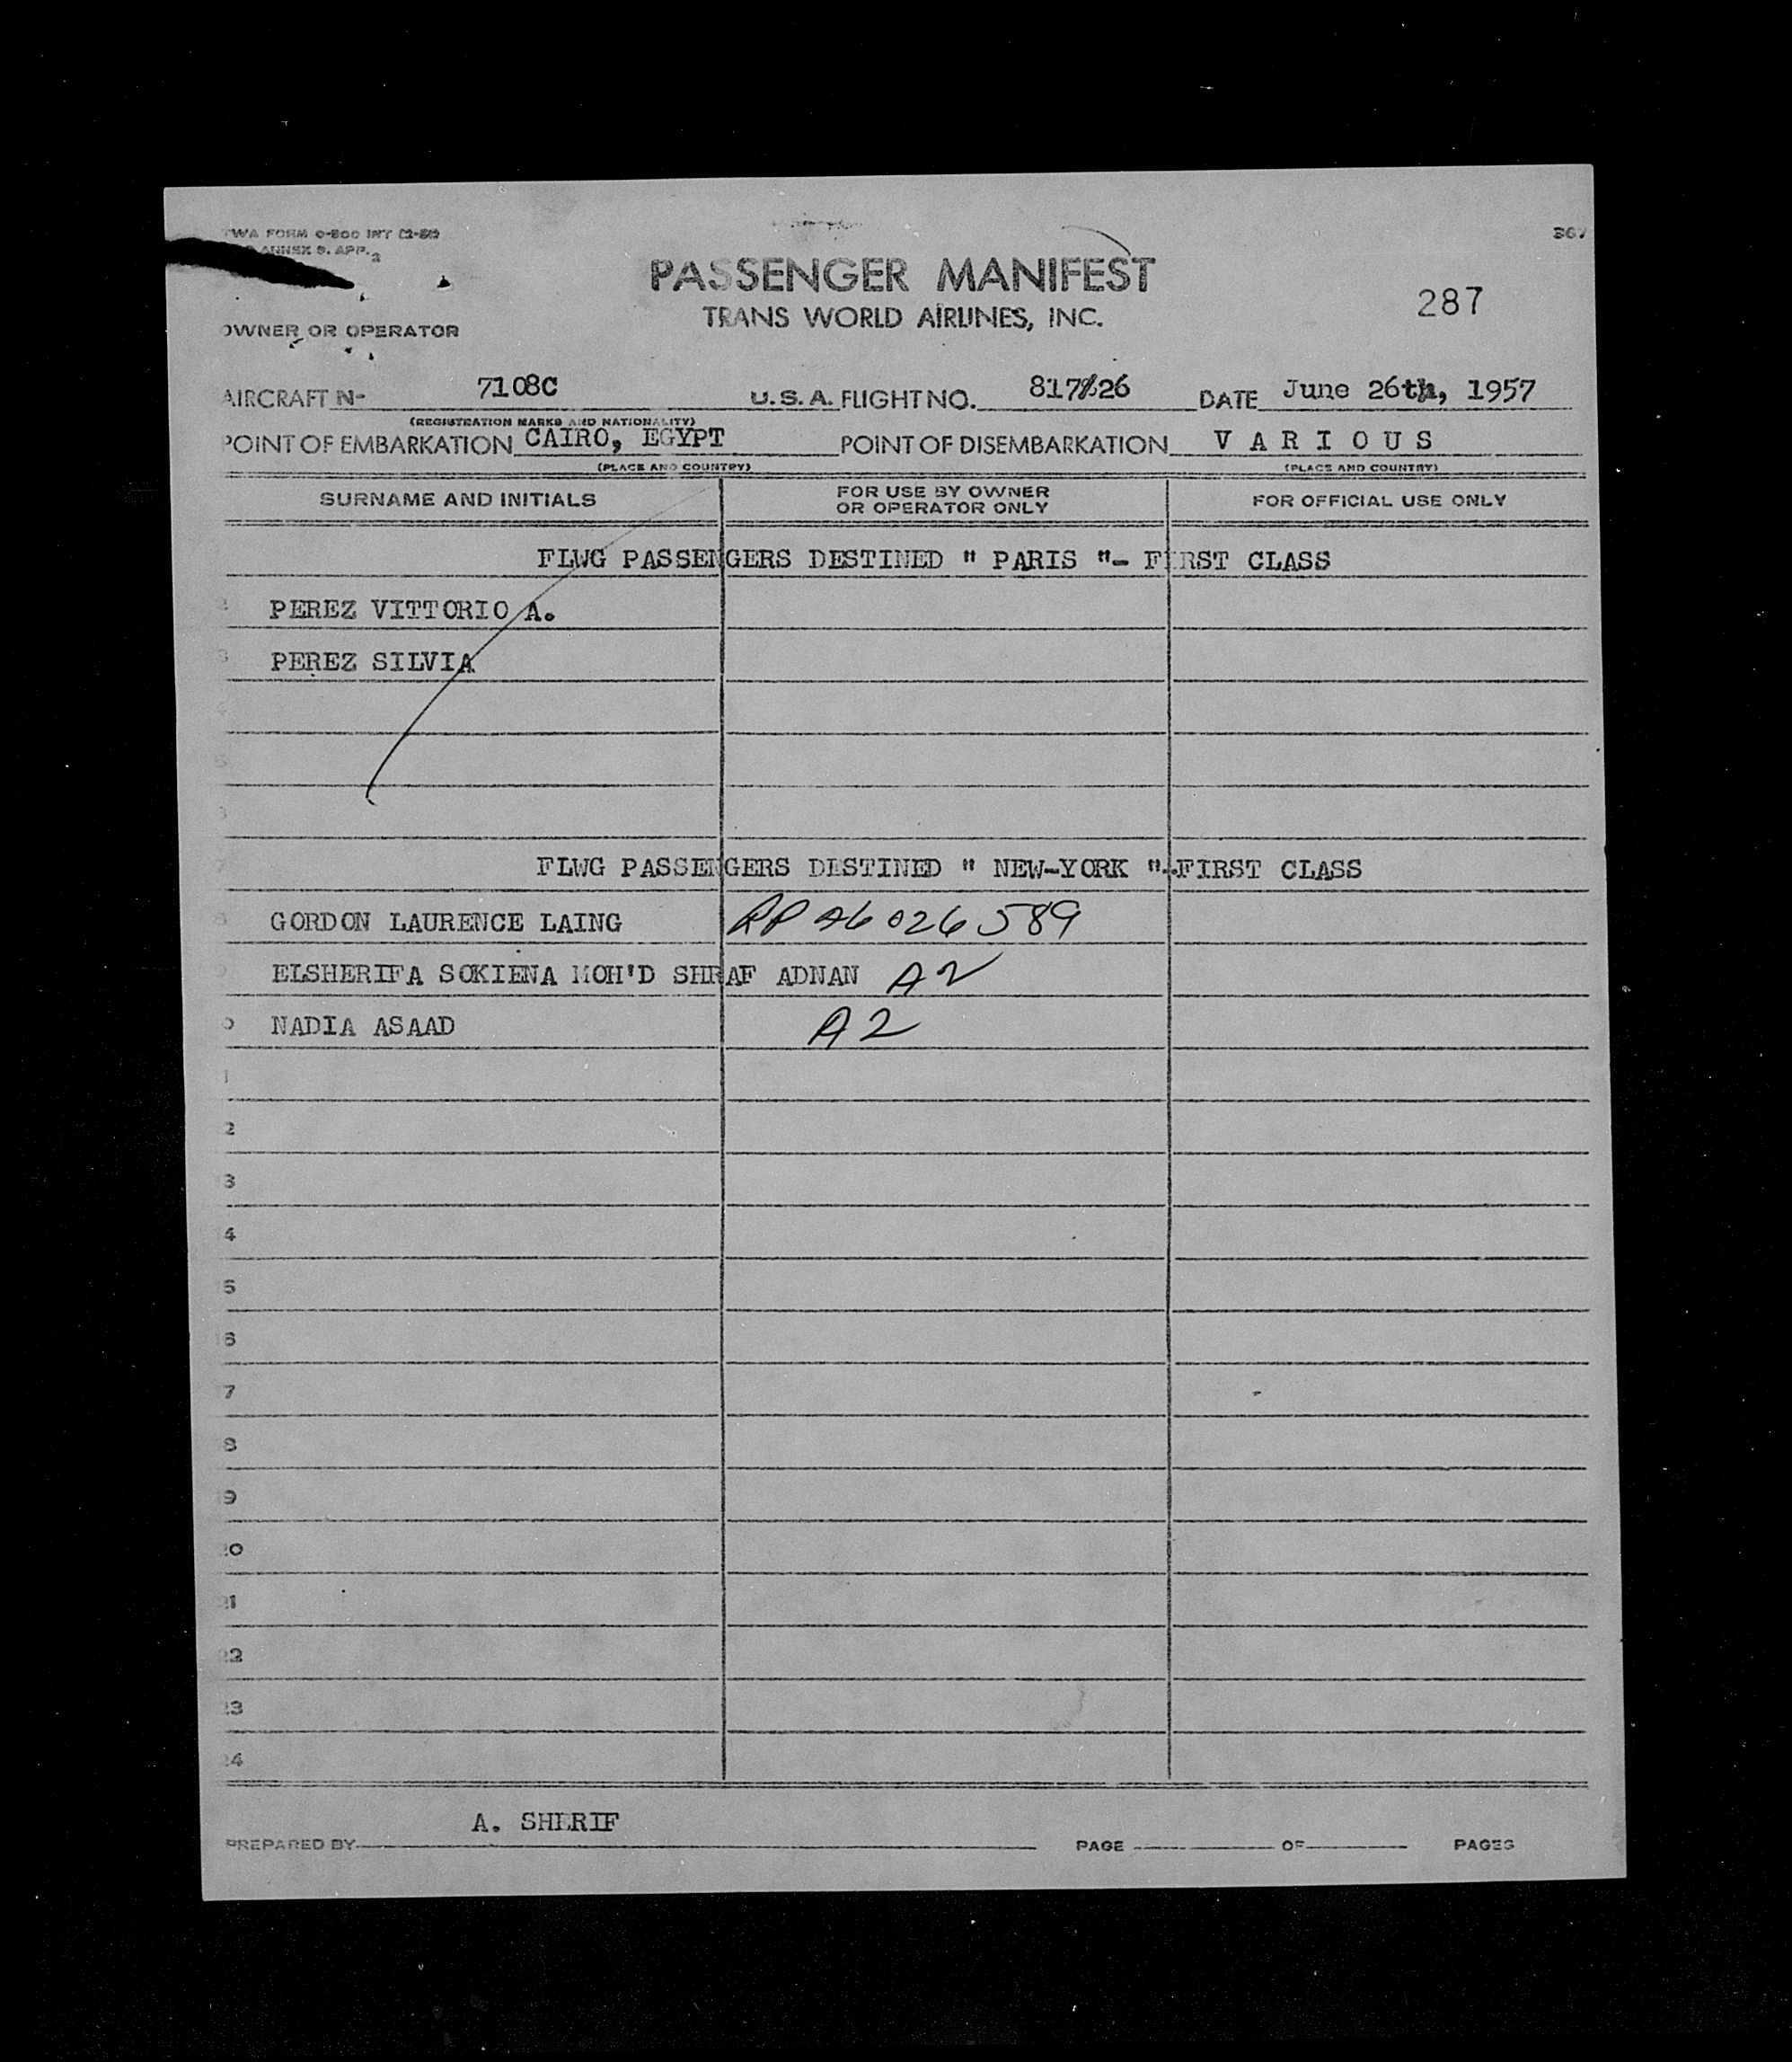 TWA FORM O-800 INT (2-51)
ANNEX 9. APP. 2
367
PASSENGER MANIFEST
TRANS WORLD AIRLINES, INC.
287
OWNER OR OPERATOR
AIRCRAFT No 7108C U.S.A. FLIGHT NO. 817/26 DATE June 26th, 1957
(REGISTRATION MARKS AND NATIONALITY)
POINT OF EMBARKATION CAIRO, EGYPT POINT OF DISEMBARKATION V A R I O U S
(PLACE AND COUNTRY) (PLACE AND COUNTRY)
SURNAME AND INITIALS FOR USE BY OWNER OR OPERATOR ONLY FOR OFFICIAL USE ONLY
FLWG PASSENGERS DESTINED " PARIS "- FIRST CLASS
2 PEREZ VITTORIO A.
3 PEREZ SILVIA
4
5
6
7 FLWG PASSENGERS DESTINED " NEW-YORK "-FIRST CLASS
8 GORDON LAURENCE LAING RP A6 026 589
9 ELSHERIFA SOKIENA MOH'D SHRAF ADNAN A2
0 NADIA ASAAD A2
1
2
3
4
5
6
7
8
9
20
21
22
23
24
PREPARED BY A. SHERIF PAGE OF PAGES